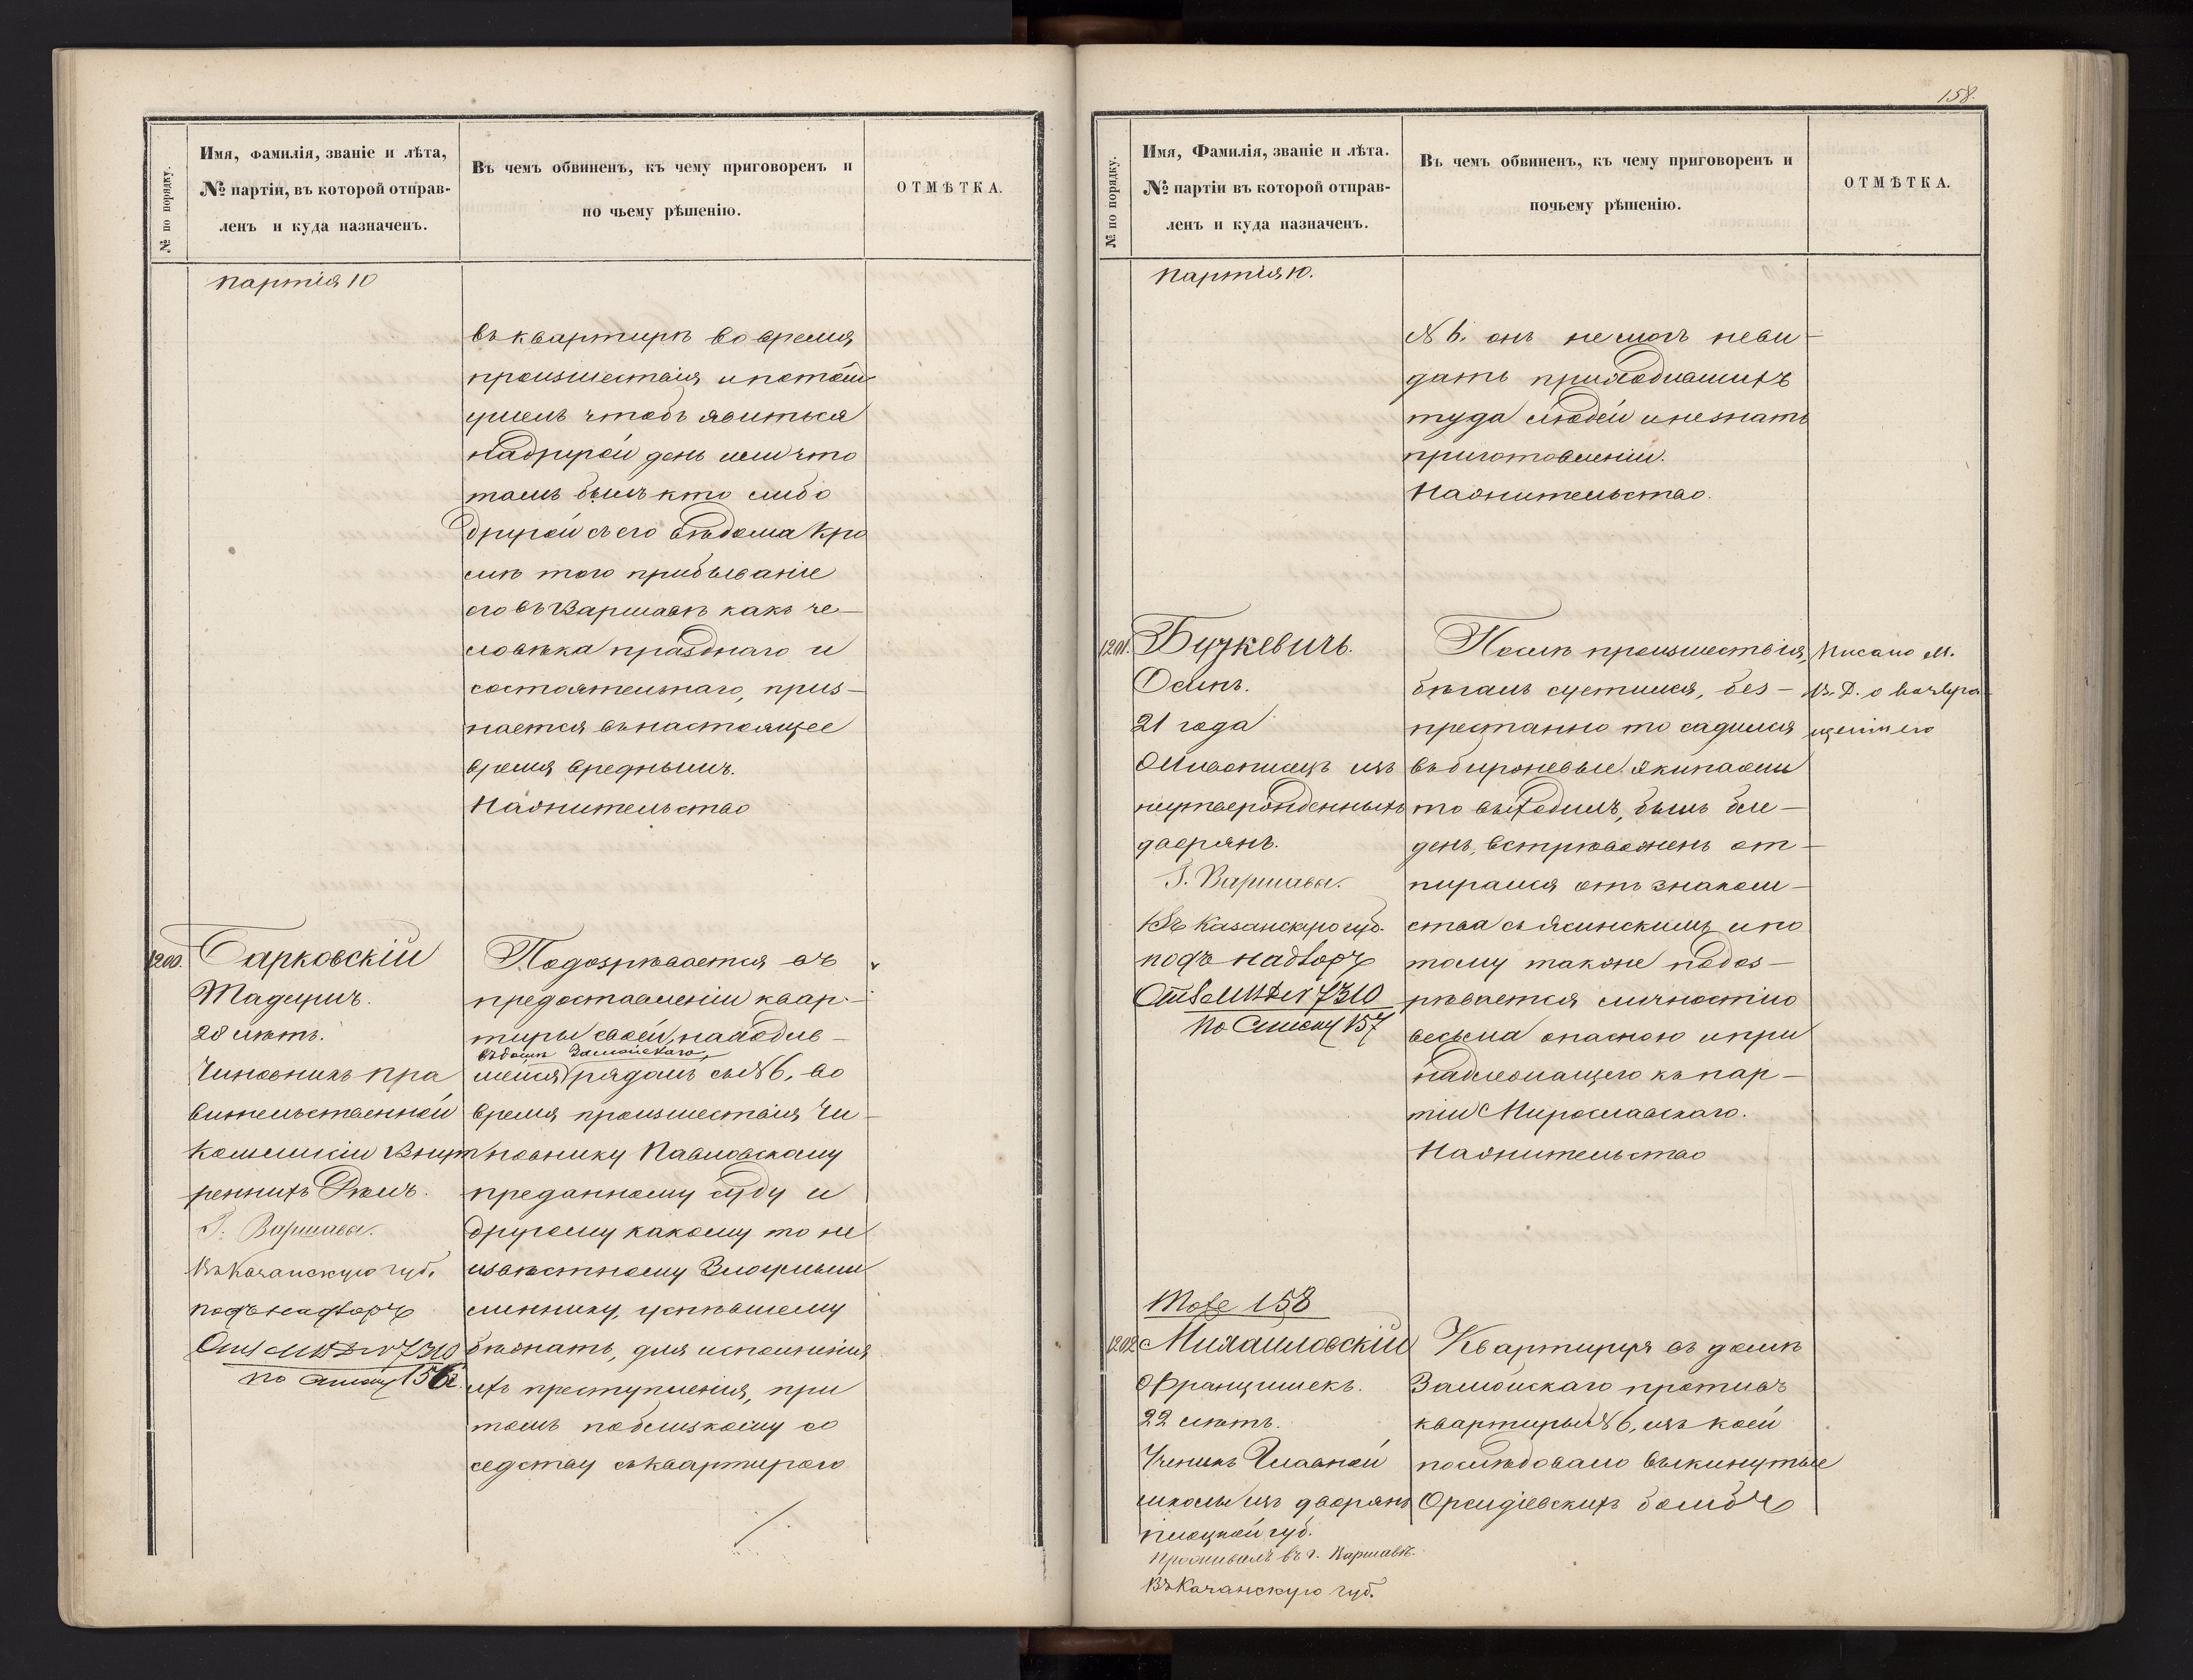 № по порядку.
Имя, фамилія, званіе и лѣта,
№ партіи, въ которой отправ-
ленъ и куда назначенъ.
Въ чемъ обвиненъ, къ чему приговоренъ и
по чьему рѣшенію.
ОТМѢТКА.
партія 10
въ квартирѣ во время
происшествія и потомъ
ушелъ чтобъ явиться
на другой день или что
тамъ былъ кто либо
другой съ его вѣдома Кро
мѣ того пребываніе
его въ Варшавѣ какъ че-
ловѣка празднаго и
состоятельнаго, приз-
нается въ настоящее
время вреднымъ.
На жительство
1200.
Барковскій
Тадеушъ.
28 лѣтъ.
Чиновникъ пра
вительственной
коммисіи Внут
реннихъ Дѣлъ.
Г. Варшава.
Въ Казанскую губ.
подъ надзоръ
7310
по списку 156
Подозрѣвается въ
предоставленіи квар-
тиры своей, находив-
въ домѣ Замойскаго,
шейся рядомъ съ №6, во
время происшествія Чи-
новнику Павловскому
преданному суду и
другому какому то не
извѣстному Злоумыш
леннику, успѣвшему
бѣжать, для исполненія
ихъ преступленія, при
томъ по близкому со
седству съ квартирою
158.
№ по порядку.
Имя, Фамилія, званіе и лѣта.
№ партіи въ которой отправ-
ленъ и куда назначенъ.
Въ чемъ обвиненъ, къ чему приговоренъ и
почьему рѣшенію.
ОТМѢТКА.
партія 10.
№ 6. онъ не могъ неви-
дать приходившихъ
туда людей и незнать
приготовленіи.
На жительство.
1201.
Бучкевичъ.
Осипъ.
21 года
Живописецъ изъ
неутвержденныхъ
дворянъ.
Г. Варшава.
Въ Казанскую губ.
подъ надзоръ
7310
по списку 157
Послѣ происшествія,
бѣгалъ суетился, без-
престанно то садился
въ биржевые экипажи
то выходилъ, былъ блѣ-
денъ, встревоженъ от-
пирался отъ знаком-
ства съ Ясинскимъ и по
тому также подоз-
рѣвается личностію
весьма опасною и при
надлежащего къ пар-
тіи Мирославскаго.
На жительство
Писано М.
В. Д. о возвра-
щеніи его
Тоже 158
1202
Михайловскій
Францишекъ.
22 лѣтъ.
Ученикъ Главной
школы изъ дворянъ
плоцкой губ.
проживалъ въ г. Варшавѣ.
Въ Казанскую губ.
Квартируя въ домѣ
Замойскаго противъ
квартиры №6, изъ коей
послѣдовало выкинутые
Орсидіевскихъ бомбъ